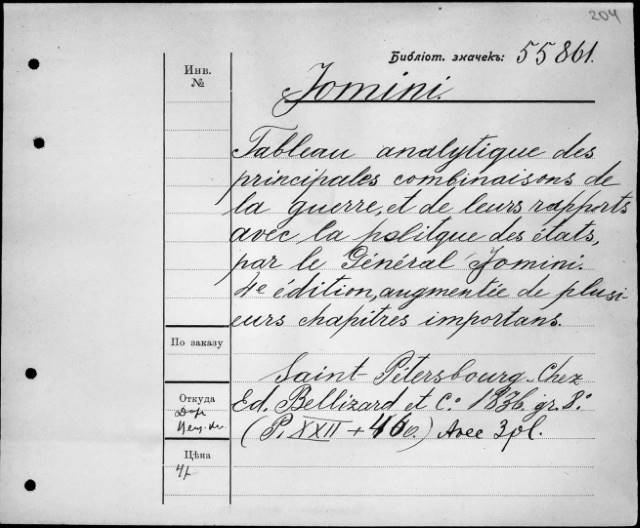 204
Библіот. значекъ: 55861.
Инв.
№
Jomini.
Tableau analytique des
principales combinaisons de
la guerre, et de leurs rapports
avec la politque des états,
par le Général Jomini.
4e édition, augmentée de plusi-
eurs chapitres importans.
По заказу
Saint-Pétersbourg. Chez
Откуда
Ed. Bellizard et C.o 1836. gr. 8.o
(P. XXII + 460.) Avec 3 pl.
Цѣна